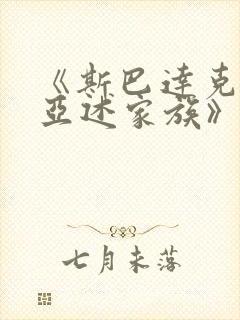 《斯巴达克
亚述家族》
七月未落